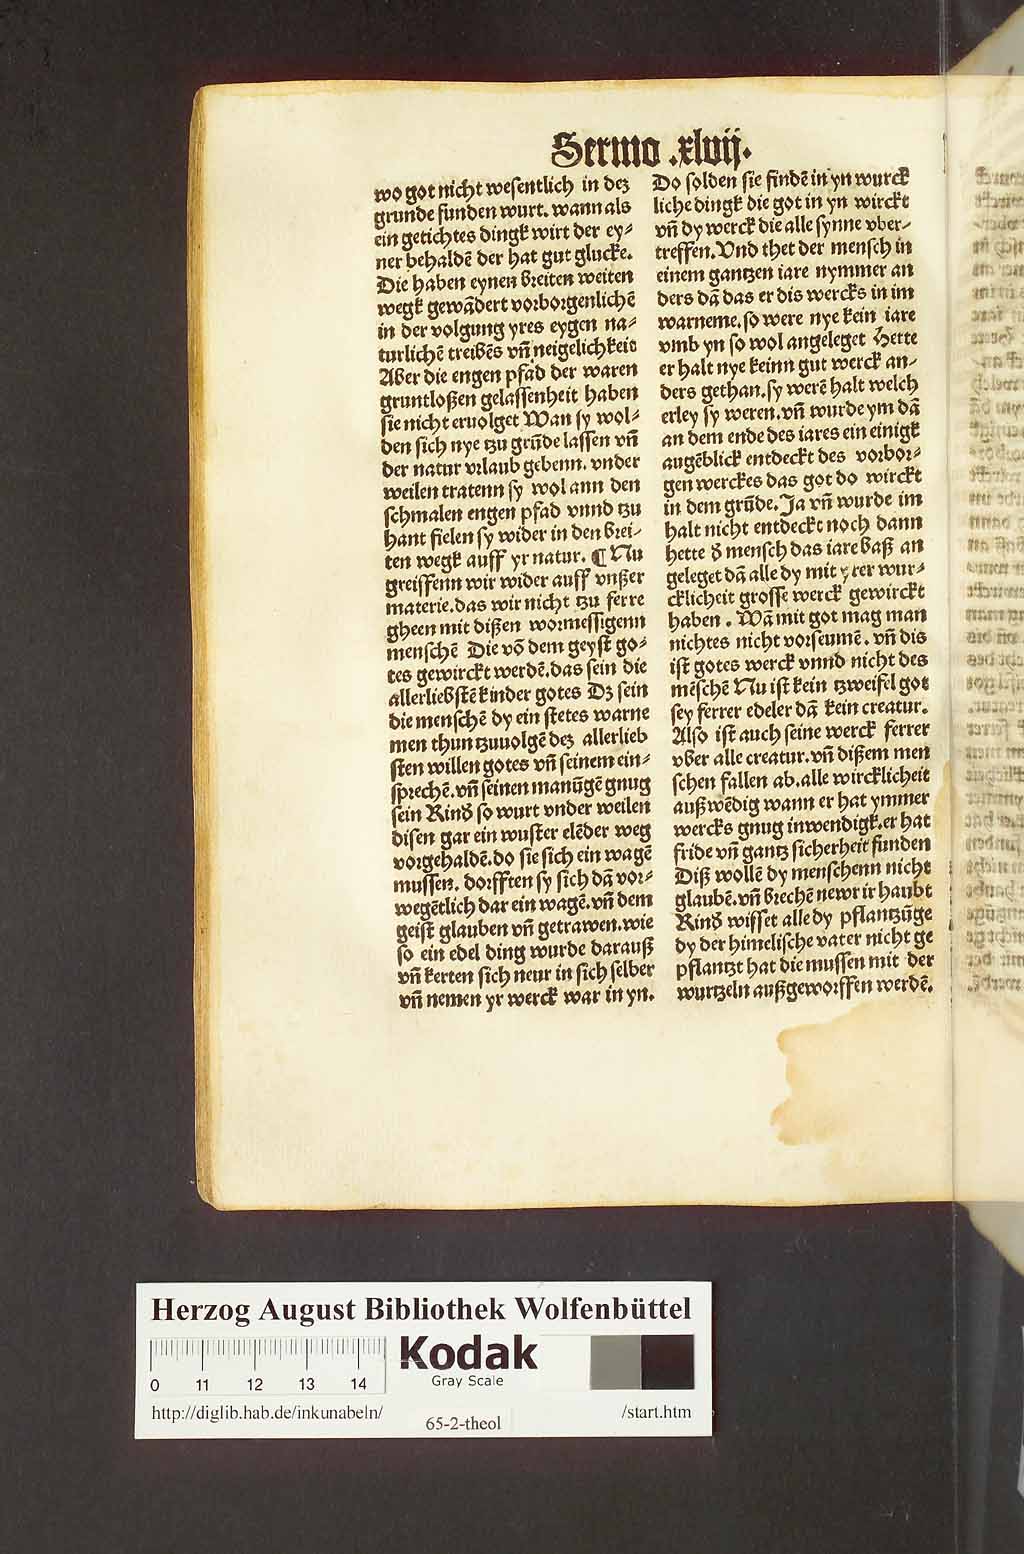 Sermo .xlvij.
wo got nicht wesentlich in dez
grunde funden wurt. wann als
ein getichtes dingk wirt der ey⸗
ner behaldē der hat gut glucke.
Die haben eynen breiten weiten
wegk gewādert vorborgenlichē
in der volgung yres eygen na⸗
turlichē treibēs vñ neigelichkeit
Aber die engen pfad der waren
gruntloßen gelassenheit haben
sie nicht ervolget Wan sy wol⸗
den sich nye tzu grūde lassen vñ
der natur vrlaub gebenn. vnder
weilen tratenn sy wol ann den
schmalen engen pfad vnnd tzu
hant fielen sy wider in den brei⸗
ten wegk auff yr natur. ¶ Nu
greiffenn wir wider auff vnßer
materie. das wir nicht tzu ferre
gheen mit dißen wormessigenn
menschē Die vō dem geyst go⸗
tes gewirckt werdē. das sein die
allerliebstē kinder gotes Dz sein
die menschē dy ein stetes warne
men thun tzuuolgē dez allerlieb
sten willen gotes vñ seinem ein⸗
sprechē. vñ seinen manūgē gnug
sein Kinđ so wurt vnder weilen
disen gar ein wuster elēder weg
vorgehaldē. do sie sich ein wagē
mussen. dorfften sy sich dā vor⸗
wegētlich dar ein wagē. vñ dem
geist glauben vñ getrawen. wie
so ein edel ding wurde darauß
vñ kerten sich neur in sich selber
vñ nemen yr werck war in yn.
Do solden sie findē in yn wurck
liche dingk die got in yn wirckt
vñ dy werck die alle synne vber⸗
treffen. Vnd thet der mensch in
einem gantzen iare nymmer an
ders dā das er dis wercks in im
warneme. so were nye kein iare
vmb yn so wol angeleget Hette
er halt nye keinn gut werck an⸗
ders gethan. sy werē halt welch
erley sy weren. vñ wurde ym dā
an dem ende des iares ein einigk
augēblick entdeckt des vorbor⸗
gen werckes das got do wirckt
in dem grūde. Ja vñ wurde im
halt nicht entdeckt noch dann
hette đ mensch das iare baß an
geleget dā alle dy mit yrer wur⸗
cklicheit grosse werck gewirckt
haben. Wā mit got mag man
nichtes nicht vorseumē. vñ dis
ist gotes werck vnnd nicht des
mēschē Nu ist kein tzweifel got
sey ferrer edeler dā kein creatur.
Also ist auch seine werck ferrer
vber alle creatur. vñ dißem men
schen fallen ab. alle wircklicheit
außwēdig wann er hat ymmer
wercks gnug inwendigk. er hat
fride vñ gantz sicherheit funden
Diß wollē dy menschenn nicht
glaubē. vñ brechē newr ir haubt
Kinđ wisset alle dy pflantzūge
dy der himelische vater nicht ge
pflantzt hat die mussen mit der
wurtzeln außgeworffen werdē.
Herzog August Bibliothek Wolfenbüttel
0 11 12 13 14
Kodak
Gray Scale
http://diglib.hab.de/inkunabeln/
65-2-theol
/start.htm